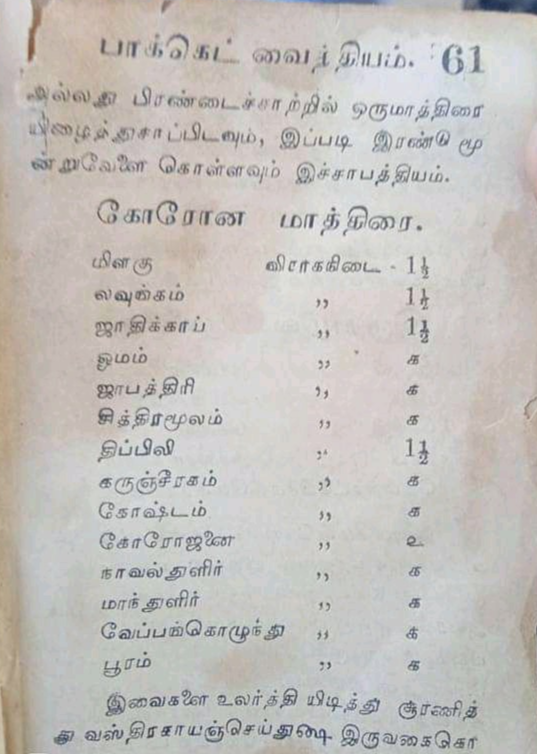 பாக்கெட் வைத்தியம். 61
அல்லது பிரண்டைச்சாற்றில் ஒருமாத்திரை
யிழைத்துசாப்பிடவும், இப்படி இரண்டு மூ
ன்றுவேளை கொள்ளவும் இச்சாபத்தியம்.
கோரோன மாத்திரை.
மிளகு விராகநிடை - 1½
லவுங்கம் ,, 1½
ஜாதிக்காப் ,, 1½
ஓமம் ,, க
ஜாபத்திரி ,, க
சித்திரமூலம் ,, க
திப்பிலி ,, 1½
கருஞ்சீரகம் ,, க
கோஷ்டம் ,, க
கோரோஜனை ,, உ
நாவல்துளிர் ,, க
மாந்துளிர் ,, க
வேப்பங்கொழுந்து ,, க
பூரம் ,, க
இவைகளை உலர்த்தி யிடித்து சூரணித்
து வஸ்திரகாயஞ்செய்து இருவகைகொ